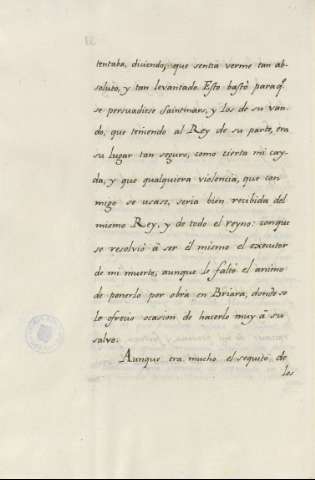 tentaba, diciendo, que sentia verme tan ab-
soluto, y tan levantado. Esto bastò paraq.e
se persuadiese Saintmars, y los de su van-
do, que teniendo al Rey de su parte, era
su lugar tan seguro, como cierta mi cay-
da, y que qualquiera violencia, que con-
migo se usase, seria bien recibida del
mismo Rey, y de todo el reyno: conque
se resolviò à ser èl mismo el executor
de mi muerte, aunque le faltò el animo
de ponerlo por obra en Briara, donde se
le ofreciò ocasion de hacerlo muy à su
salvo.
Aunque era mucho el sequito de
los